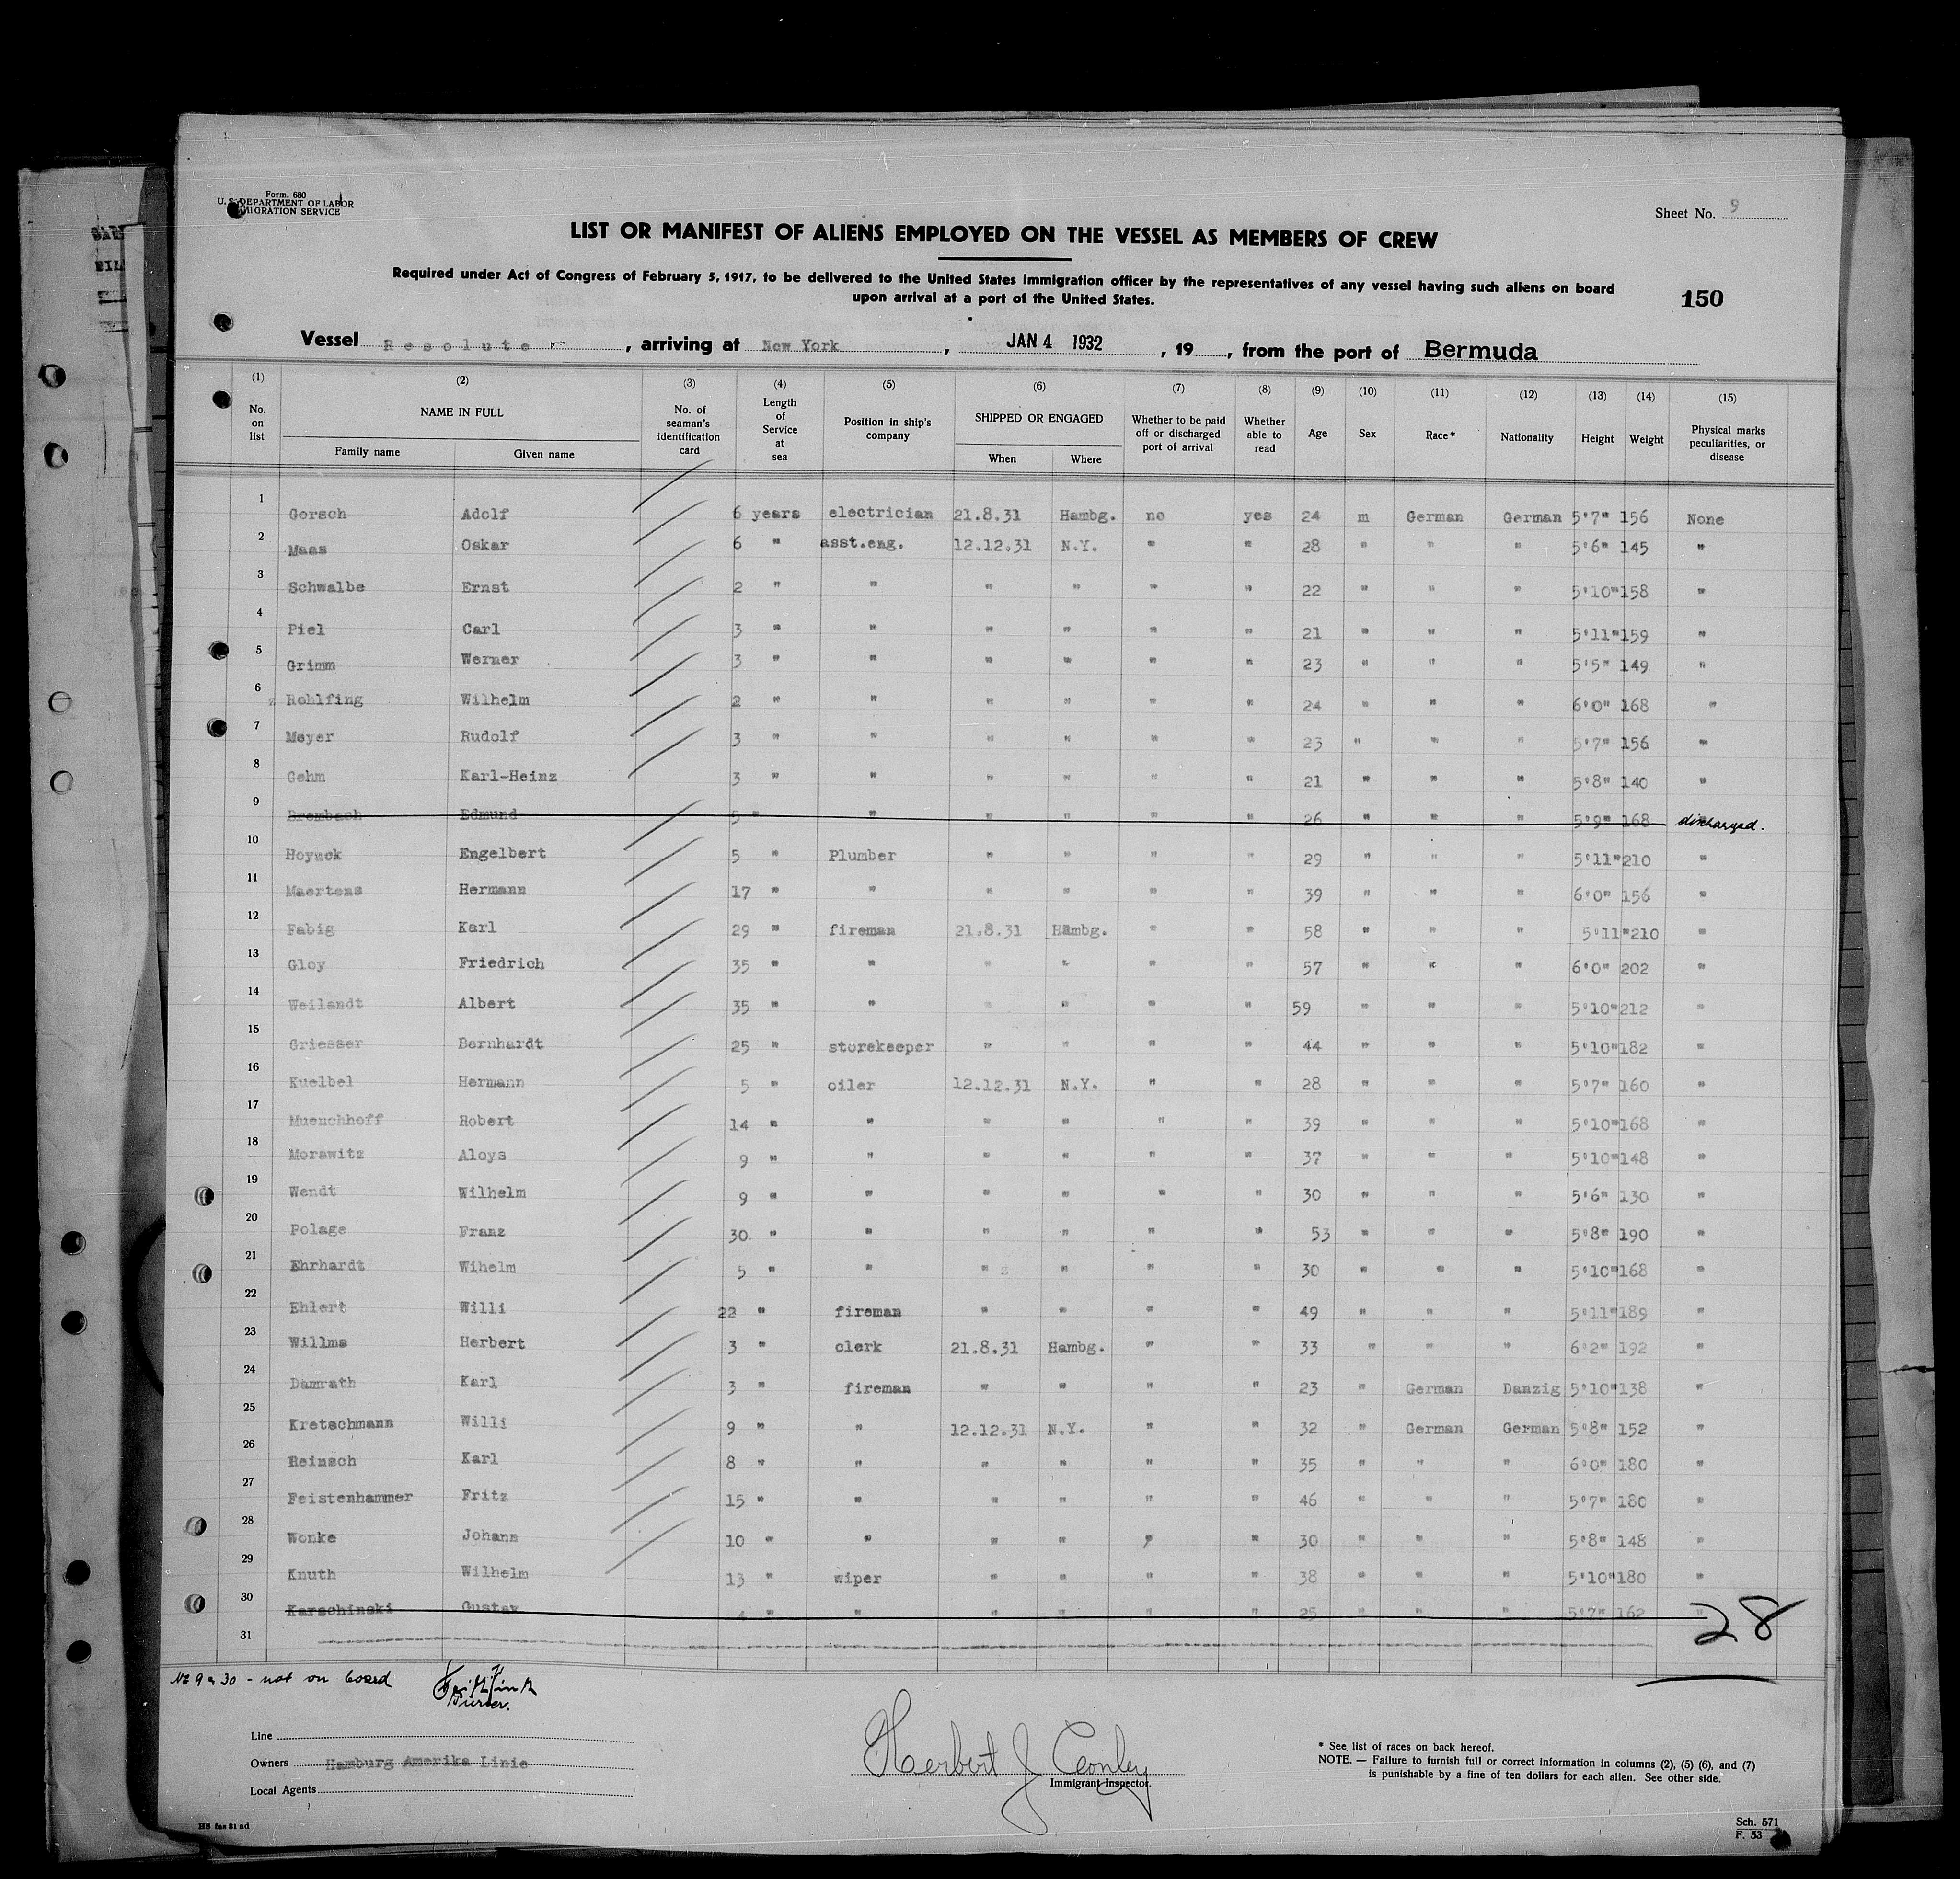 Form. 680
U. S. DEPARTMENT OF LABOR
MIGRATION SERVICE
Sheet No. 9
LIST OR MANIFEST OF ALIENS EMPLOYED ON THE VESSEL AS MEMBERS OF CREW
Required under Act of Congress of February 5, 1917, to be delivered to the United States immigration officer by the representatives of any vessel having such aliens on board
upon arrival at a port of the United States.
150
Vessel Resolute, arriving at New York, JAN 4 1932, 19, from the port of Bermuda
(1) No. on list (2) NAME IN FULL Family name Given name (3) No. of seaman's identification card (4) Length of Service at sea (5) Position in ship's company (6) SHIPPED OR ENGAGED When Where (7) Whether to be paid off or discharged port of arrival (8) Whether able to read (9) Age (10) Sex (11) Race* (12) Nationality (13) Height (14) Weight (15) Physical marks peculiarities, or disease
1 Gorsch Adolf 6 years electrician 21.8.31 Hambg. no yes 24 m German German 5'7" 156 None
2 Maas Oskar 6 " asst.eng. 12.12.31 N.Y. " " 28 " " " 5'6" 145 "
3 Schwalbe Ernst 2 " " " " " " 22 " " " 5'10" 158 "
4 Piel Carl 3 " " " " " " 21 " " " 5'11" 159 "
5 Grimm Werner 3 " " " " " " 23 " " " 5'5" 149 "
6 Rohlfing Wilhelm 2 " " " " " " 24 " " " 6'0" 168 "
7 Meyer Rudolf 3 " " " " " " 23 " " " 5'7" 156 "
8 Gehm Karl-Heinz 3 " " " " " " 21 " " " 5'8" 140 "
9 Brombach Edmund 5 " " " " " " 26 " " " 5'9" 168 discharged.
10 Hoynck Engelbert 5 " Plumber " " " " 29 " " " 5'11" 210 "
11 Maertens Hermann 17 " " " " " " 39 " " " 6'0" 156 "
12 Fabig Karl 29 " fireman 21.8.31 Hambg. " " 58 " " " 5'11" 210 "
13 Gloy Friedrich 35 " " " " " " 57 " " " 6'0" 202 "
14 Weilandt Albert 35 " " " " " " 59 " " " 5'10" 212 "
15 Griesser Bernhardt 25 " storekeeper " " " " 44 " " " 5'10" 182 "
16 Kuelbel Hermann 5 " oiler 12.12.31 N.Y. " " 28 " " " 5'7" 160 "
17 Muenchhoff Robert 14 " " " " " " 39 " " " 5'10" 168 "
18 Morawitz Aloys 9 " " " " " " 37 " " " 5'10" 148 "
19 Wendt Wilhelm 9 " " " " " " 30 " " " 5'6" 130 "
20 Polage Franz 30 " " " " " " 53 " " " 5'8" 190 "
21 Ehrhardt Wihelm 5 " " " " " " 30 " " " 5'10" 168 "
22 Ehlert Willi 22 " fireman " " " " 49 " " " 5'11" 189 "
23 Willms Herbert 3 " clerk 21.8.31 Hambg. " " 33 " " " 6'2" 192 "
24 Damrath Karl 3 " fireman " " " " 23 " German Danzig 5'10" 138 "
25 Kretschmann Willi 9 " " 12.12.31 N.Y. " " 32 " German German 5'8" 152 "
26 Reinsch Karl 8 " " " " " " 35 " " " 6'0" 180 "
27 Feistenhammer Fritz 15 " " " " " " 46 " " " 5'7" 180 "
28 Wonke Johann 10 " " " " " " 30 " " " 5'8" 148 "
29 Knuth Wilhelm 13 " wiper " " " " 38 " " " 5'10" 180 "
30 Karschinski Gustav 4 " " " " " " 25 " " " 5'7" 162 "
31
28
No 9 a 30 - not on board
Line
Owners Hamburg Amerika Linie
Local Agents
Herbert J Conley
Immigrant Inspector.
* See list of races on back hereof.
NOTE. — Failure to furnish full or correct information in columns (2), (5) (6), and (7)
is punishable by a fine of ten dollars for each alien. See other side.
HB fas 81 ad
Sch. 571
F. 53